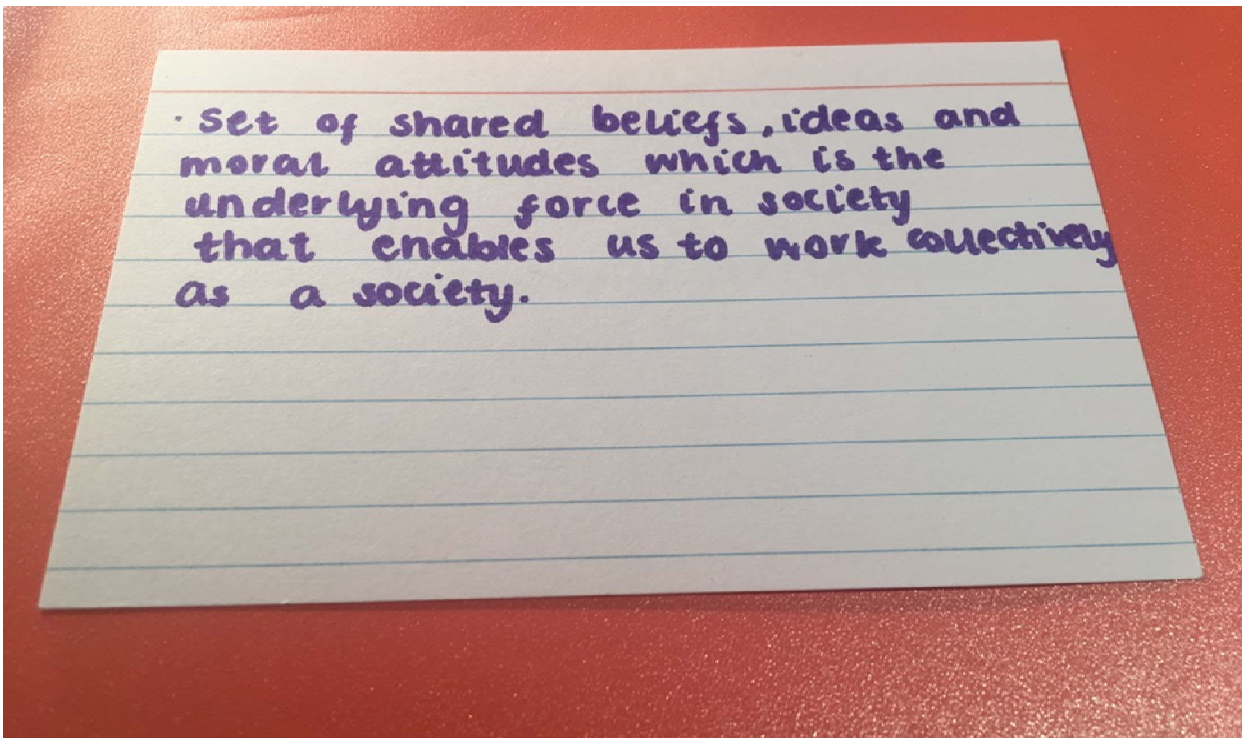 · Set of shared beliefs, ideas and
moral attitudes which is the
underlying force in society
that enables us to work collectively
as a society.